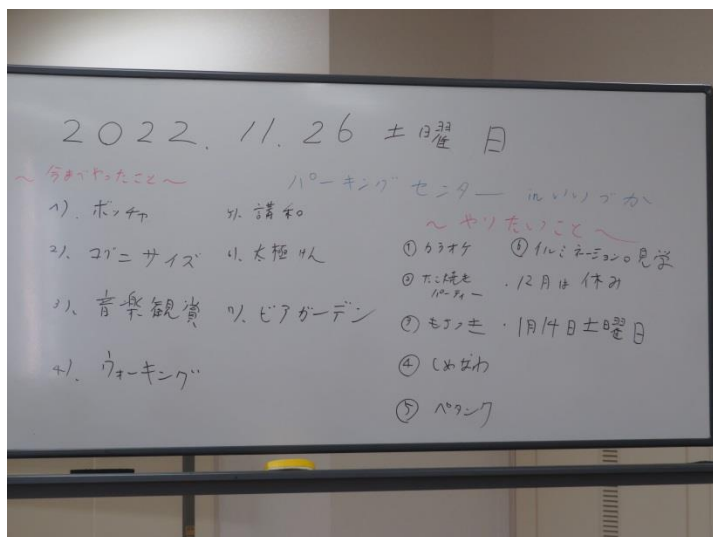 2022. 11. 26 土曜日
～今までやったこと～
パーキングセンター in いいづか
1). ボッチャ
2). コグニサイズ
3). 音楽観賞
4). ウォーキング
5). 講和
6). 太極けん
7). ビアガーデン
～やりたいこと～
① カラオケ
② たこ焼き
パーティー
③ もちつき
④ しめなわ
⑤ ペタンク
⑥ イルミネーション。見学
・12月は休み
・1月14日土曜日